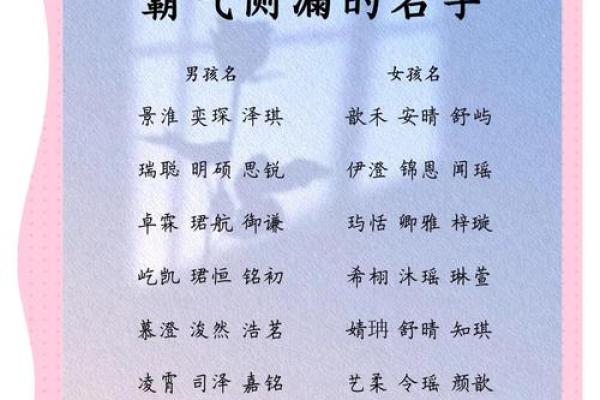 霸气侧漏的名字
男孩名 女孩名
景淮 奕琛 泽琪 歆禾 安晴 舒屿
瑞聪 明硕 思锐 伊澄 锦恩 闻瑶
卓霖 珺航 御谦 玙恬 卿雅 梓璇
屹凯 珺恒 铭初 希栩 沐瑶 琳萱
慕澄 浚然 浩茗 婧玥 舒晴 知琪
凌霄 司泽 嘉铭 艺柔 令瑶 颜歆